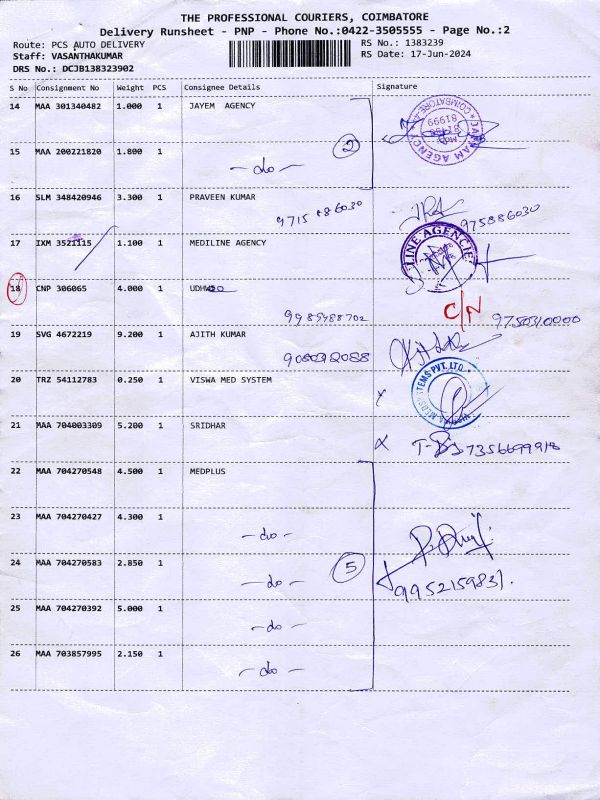 THE PROFESSIONAL COURIERS, COIMBATORE
Delivery Runsheet - PNP - Phone No.:0422-3505555 - Page No.:2
Route: PCS AUTO DELIVERY
RS No.: 1383239
Staff: VASANTHAKUMAR
RS Date: 17-Jun-2024
DRS No.: DCJB138323902
S No Consignment No Weight PCS Consignee Details Signature
14 MAA 301340482 1.000 1 JAYEM AGENCY
2
15 MAA 200221820 1.800 1 -do-
16 SLM 348420946 3.300 1 PRAVEEN KUMAR
9715886030 975886030
17 IXM 3521115 1.100 1 MEDILINE AGENCY
LINE AGENCIE
18 CNP 306065 4.000 1
C/N
9750310000
19 SVG 4672219 9.200 1 AJITH KUMAR
9080312088
20 TRZ 54112783 0.250 1 VISWA MED SYSTEM
21 MAA 704003309 5.200 1 SRIDHAR
7356699918
22 MAA 704270548 4.500 1 MEDPLUS
23 MAA 704270427 4.300 1 -do-
24 MAA 704270583 2.850 1 -do- 5
9952159831.
25 MAA 704270392 5.000 1 -do-
26 MAA 703857995 2.150 1 -do-